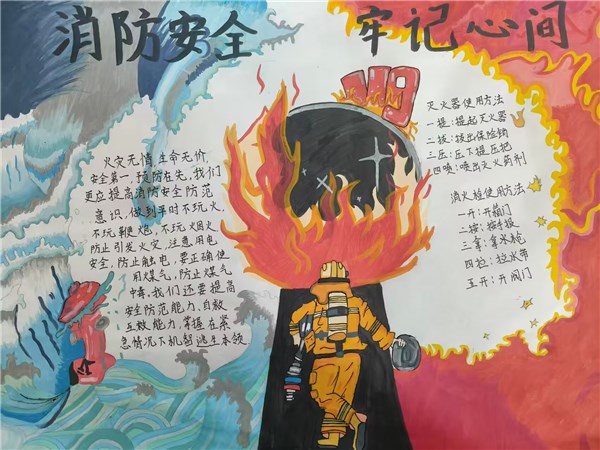 消防安全 牢记心间
119
火灾无情,生命无价,
安全第一,预防在先,我们
更应提高消防安全防范
意识,做到平时不玩火,
不玩鞭炮,不玩烟火,
防止引发火灾,注意用电
安全,防止触电,要正确使
用煤气,防止煤气
中毒,我们还要提高
安全防范能力,自救
互救能力,掌握在紧
急情况下机智逃生本领
灭火器使用方法
一提:提起灭火器
二拔:拔出保险销
三压:压下提压把
四喷:喷出灭火药剂
消火栓使用方法
一开:开箱门
二按:按手报
三拿:拿水枪
四拉:拉水带
五开:开阀门